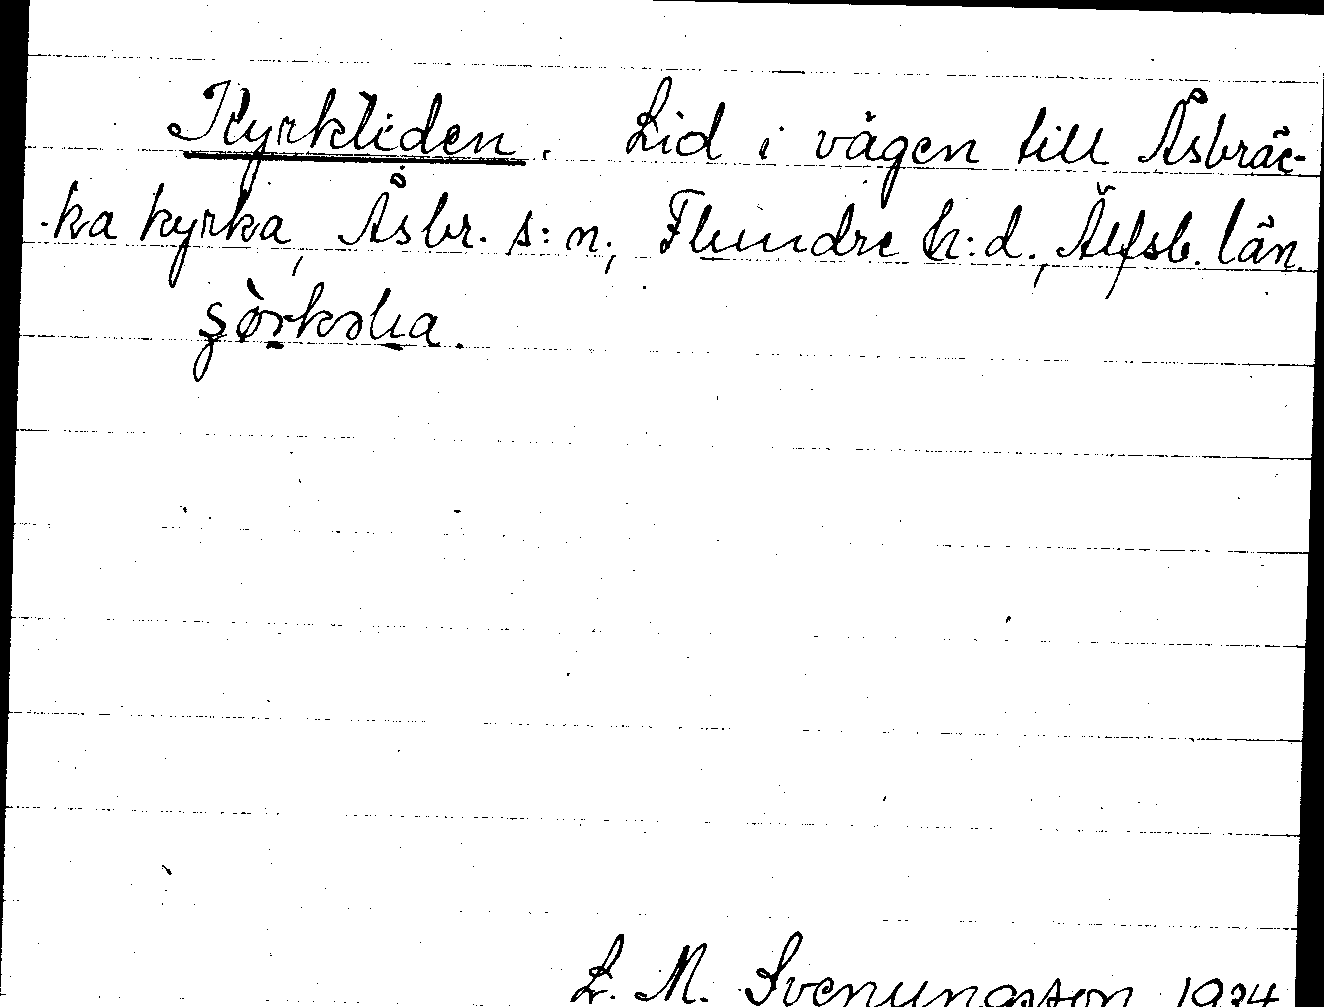 Kyrkliden. Lid i vägen till Åsbräc-
ka kyrka, Åsbr. s:n, Flundre h:d., Älfsb. län.
L. M. Svenungsson 1934